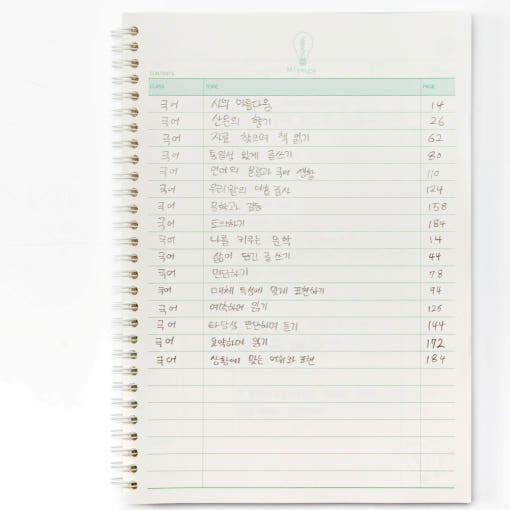 MY STUDY
CONTENTS
CLASS TOPIC PAGE
국어 시의 아름다움 14
국어 산문의 향기 26
국어 자료 찾으며 책 읽기 62
국어 통일성 있게 글쓰기 80
국어 언어의 본질과 국어 생활 110
국어 우리말의 어휘 124
국어 문학과 감동 158
국어 토의하기 184
국어 나를 키우는 문학 14
국어 삶이 담긴 글쓰기 44
국어 면담하기 78
국어 매체 특성에 맞게 표현하기 94
국어 예측하며 읽기 126
국어 타당성 판단하며 듣기 144
국어 요약하며 읽기 172
국어 상황에 맞는 어휘와 표현 184